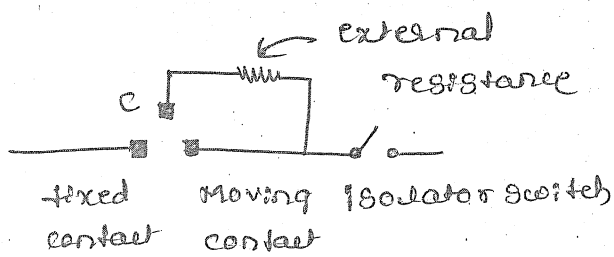 external
resistance
C
fixed
contact
Moving
contact
isolator switch